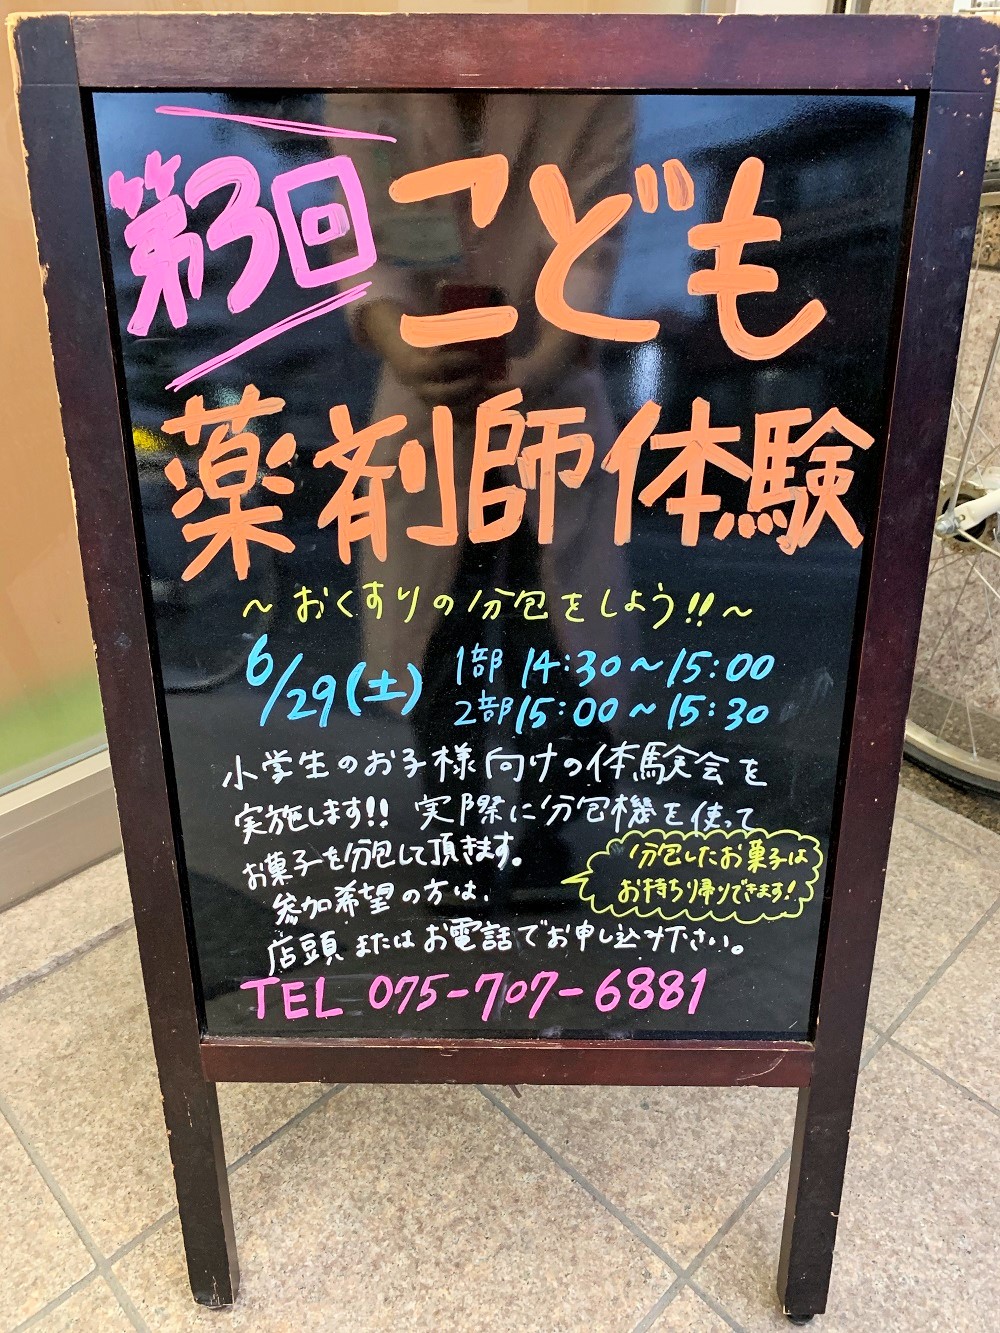 第3回 こども
薬剤師体験
～おくすりの分包をしよう!!～
6/29(土) 1部 14:30～15:00
2部 15:00～15:30
小学生のお子様向けの体験会を
実施します!! 実際に分包機を使って
お菓子を分包して頂きます。
分包したお菓子は
お持ち帰りできます!
参加希望の方は、
店頭またはお電話でお申し込み下さい。
TEL 075-707-6881